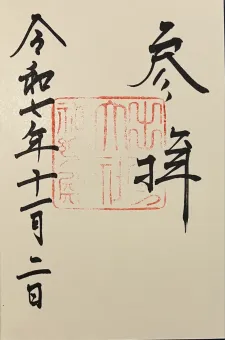 参拝
令和七年十一月二日